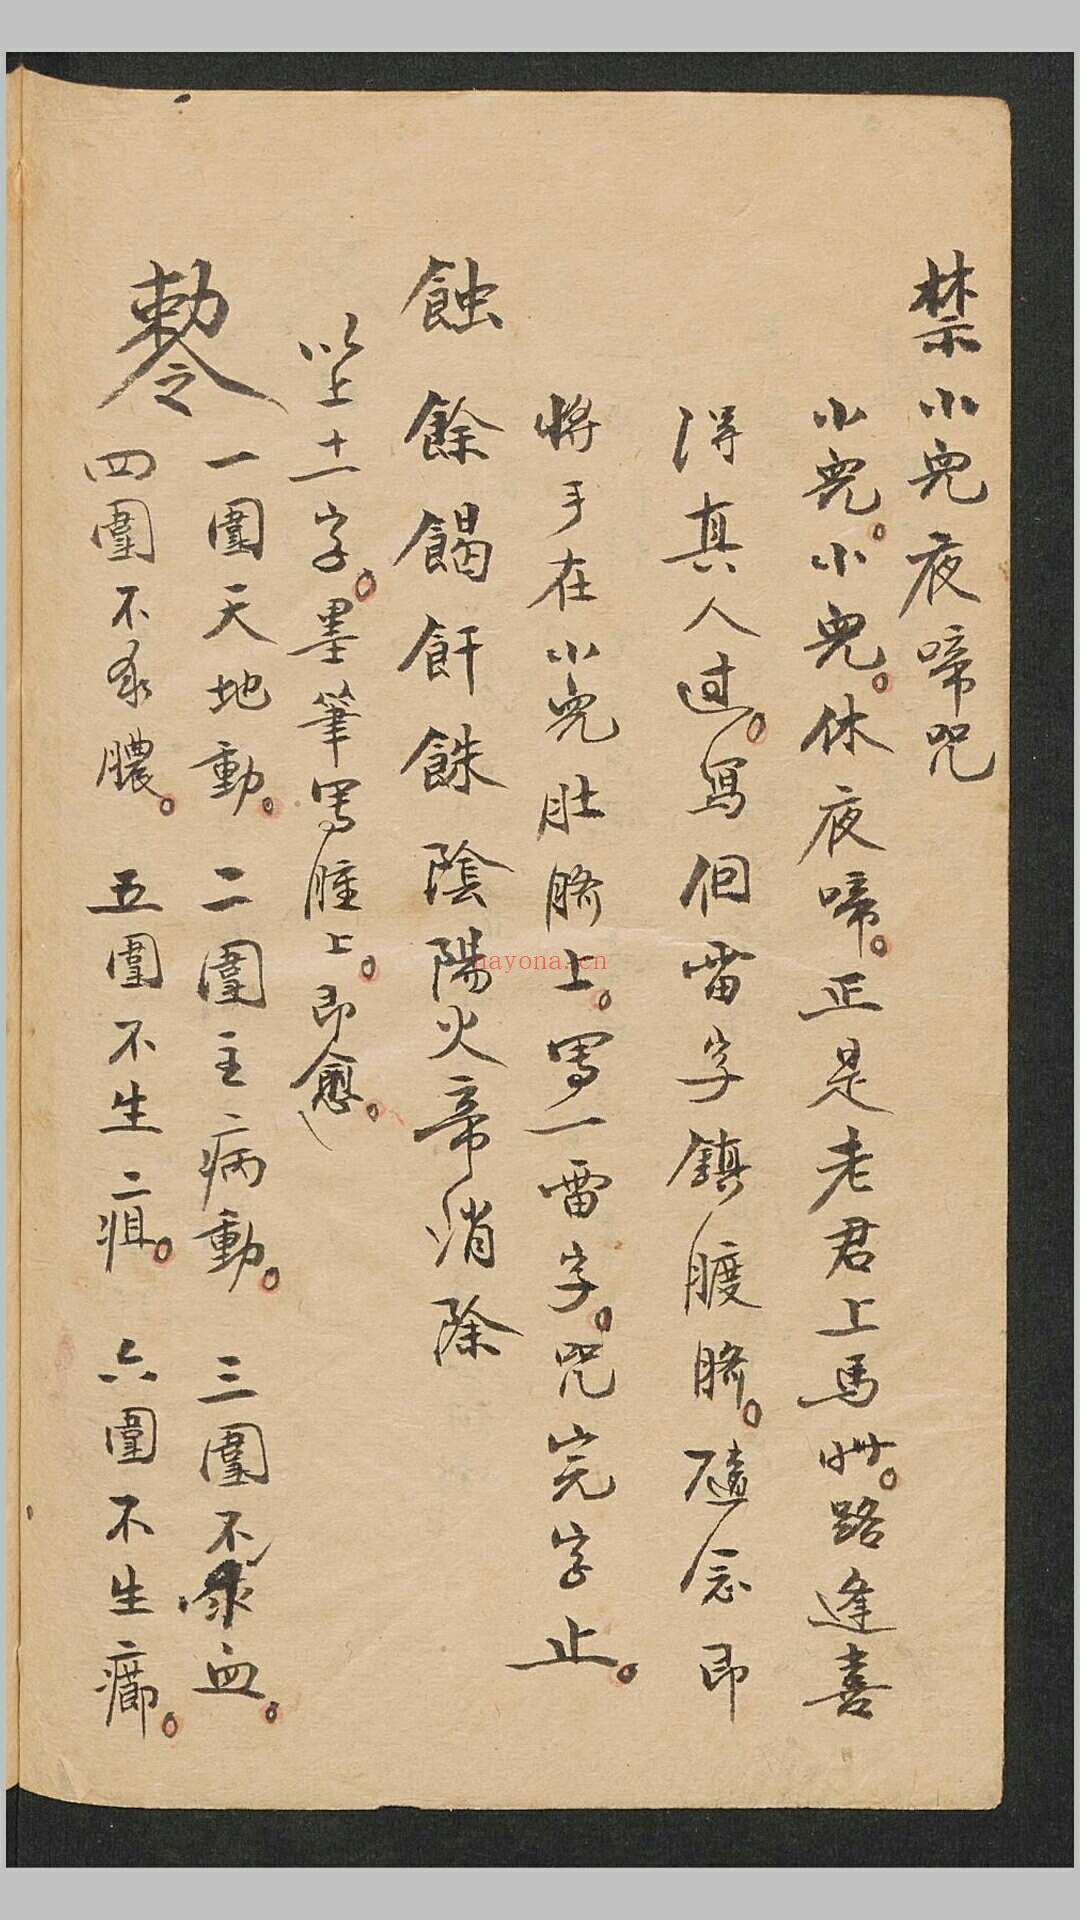 禁小兒夜啼咒
小兒。小兒。休夜啼。正是老君上馬 。路逢喜
得真人过。寫個雷字鎮臍。隨念即
將手在小兒肚臍上。寫一雷字。咒完字止。
蝕 餘 餲 飦 陰陽火帝消除
以上十一字。墨筆寫腫上。即愈。
敕令
一圍天地動。二圍主病動。三圍不血。
四圍不膿。五圍不生疽。六圍不生癤。
nayona.cn